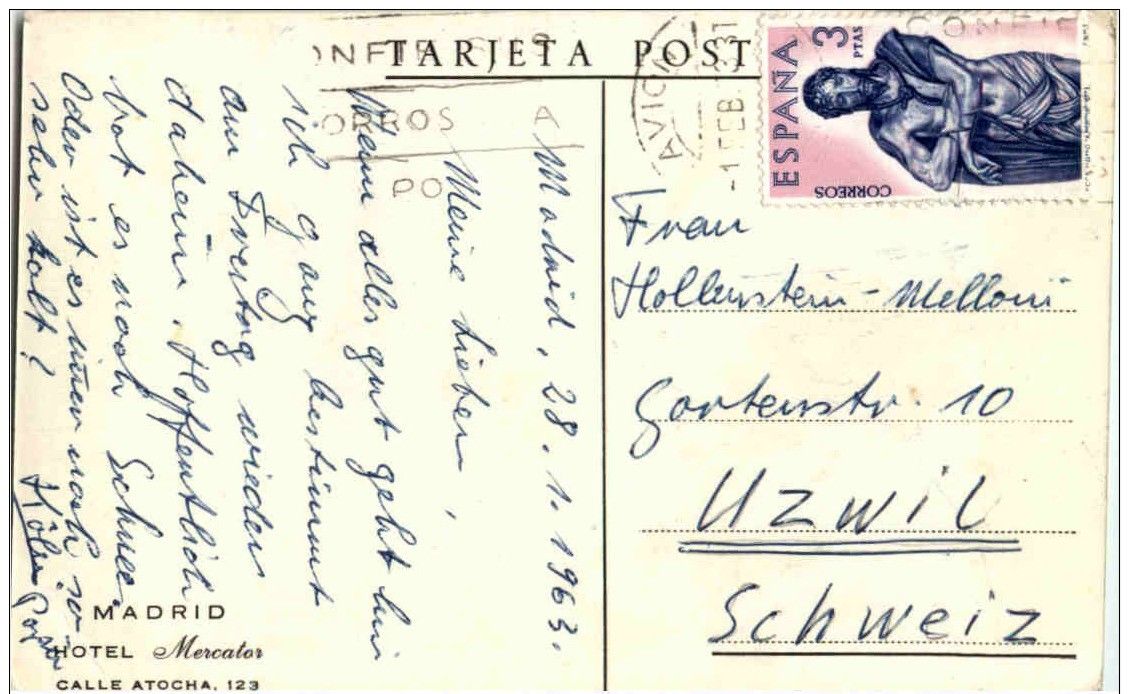 TARJETA POST
ESPAÑA
3 PTAS
CORREOS
AVION
-1 FEB.
Madrid, 28.1.1963.
Meine Lieben,
Wenn alles gut geht bin
ich ganz bestimmt
am Freitag wieder
daheim. Hoffentlich
hat es noch Schnee.
Oder ist es immer noch so
sehr kalt?
Frau
Hollenstein-Melloni
Gartenstr. 10
Uzwil
Schweiz
MADRID
HOTEL Mercator
CALLE ATOCHA, 123